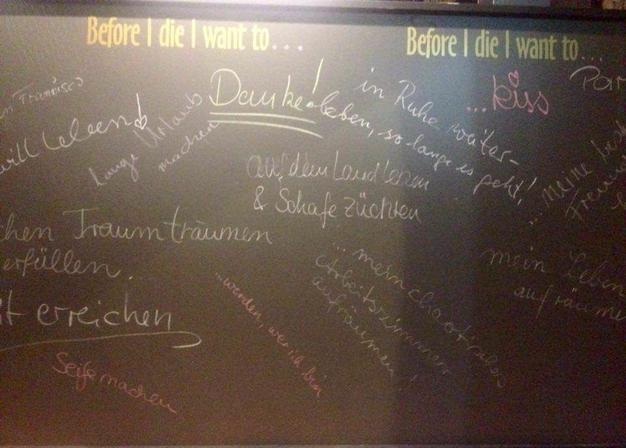 Before I die I want to...
Before I die I want to...
Danke!
in Ruhe weiter-
leben, so lange es geht!
...kiss
will leben!
Lange Urlaub
machen
auf dem Land leben
& Schafe züchten
...meine
chen Traum träumen
erfüllen.
...mein chaotisches
Arbeitszimmer
aufräumen!
mein Leben
aufräumen
...werden, wer ich bin
t erreichen
Seife machen